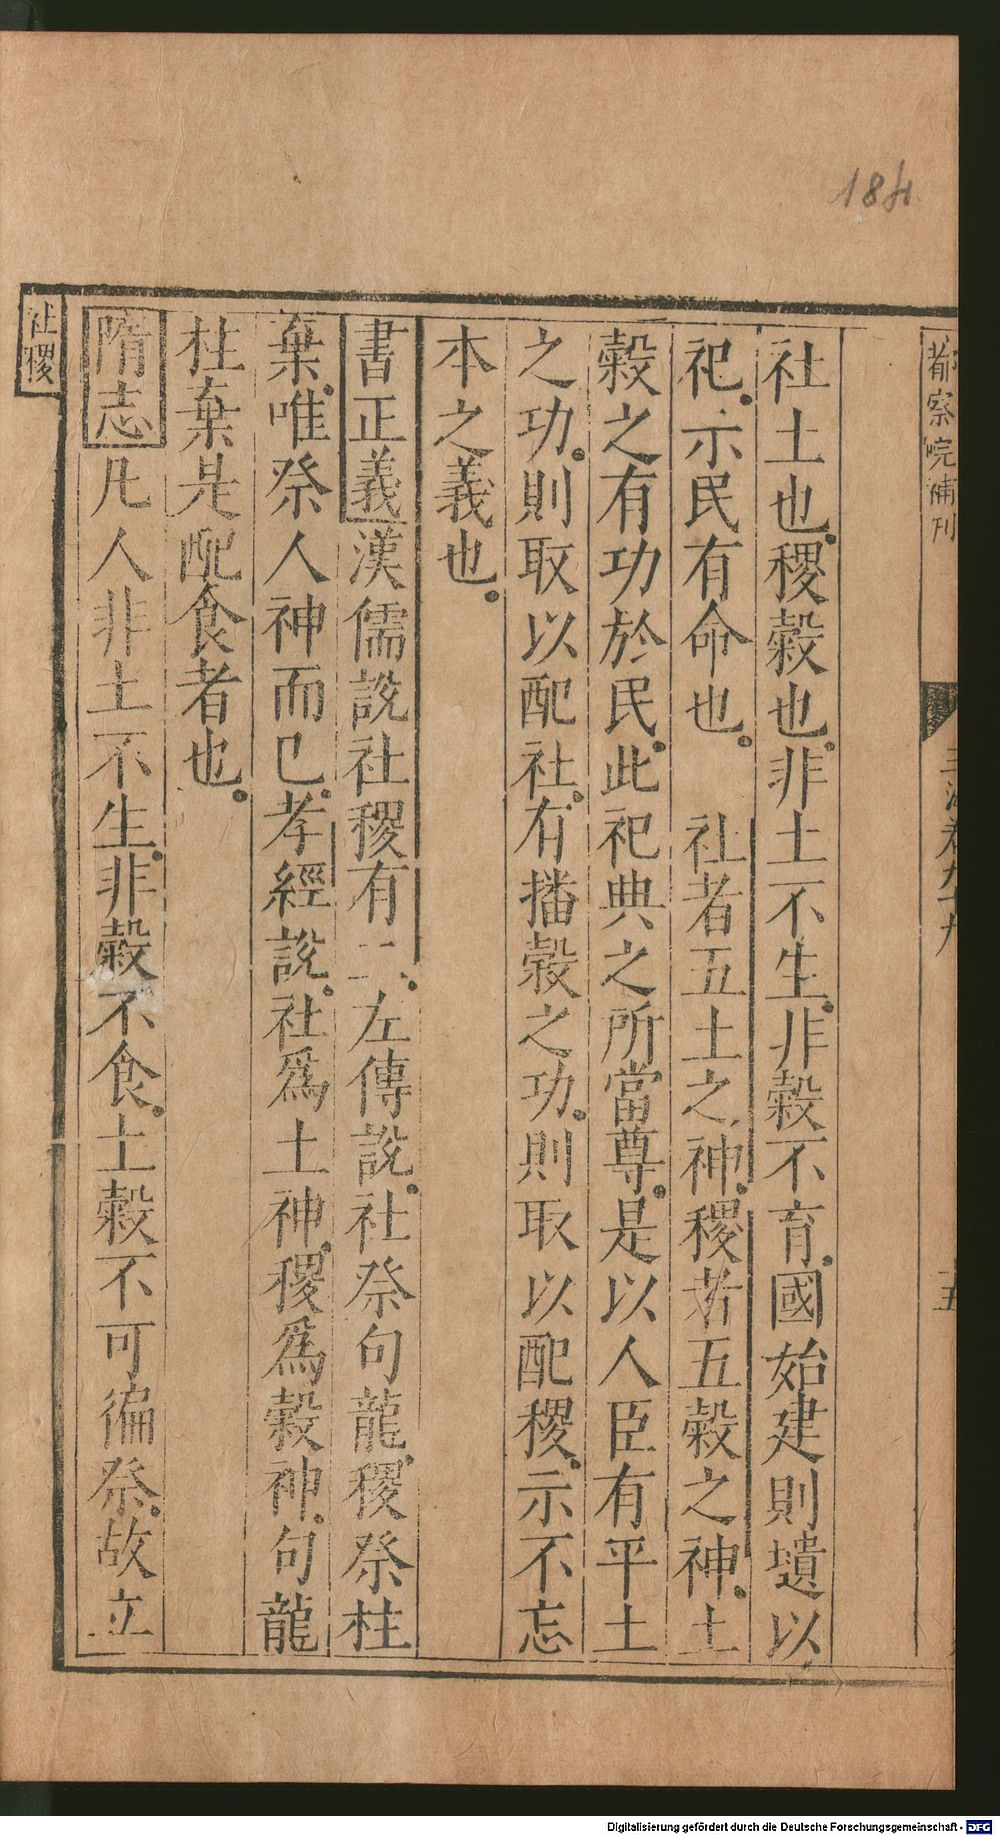 184
都察院補刊
玉海卷九十九
五
社土也稷榖也非土不生非榖不育國始建則壝以
祀示民有命也　社者五土之神稷者五榖之神土
榖之有功於民此祀典之所當尊是以人臣有平土
之功則取以配社有播榖之功則取以配稷示不忘
本之義也
書正義漢儒說社稷有二左傳說社祭句龍稷祭柱
棄唯祭人神而已孝經說社爲土神稷爲榖神句龍
柱棄是配食者也
隋志凡人非土不生非榖不食土榖不可徧祭故立
社稷
Digitalisierung gefördert durch die Deutsche Forschungsgemeinschaft - DFG